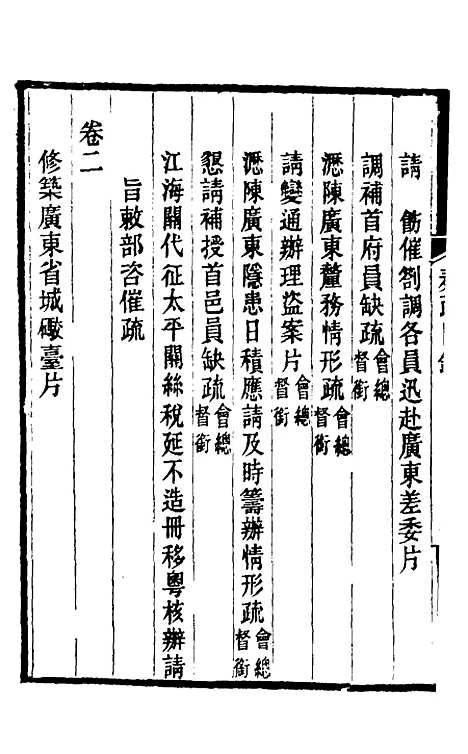 請　飭催劄調各員迅赴廣東差委片
調補首府員缺疏會總督銜
瀝陳廣東釐務情形疏會總督銜
請變通辦理盜案片會總督銜
瀝陳廣東隱患日積應請及時籌辦情形疏會總督銜
懇請補授首邑員缺疏會總督銜
江海關代征太平關絲稅延不造冊移粵核辦請
旨敕部咨催疏
卷二
修築廣東省城礮臺片